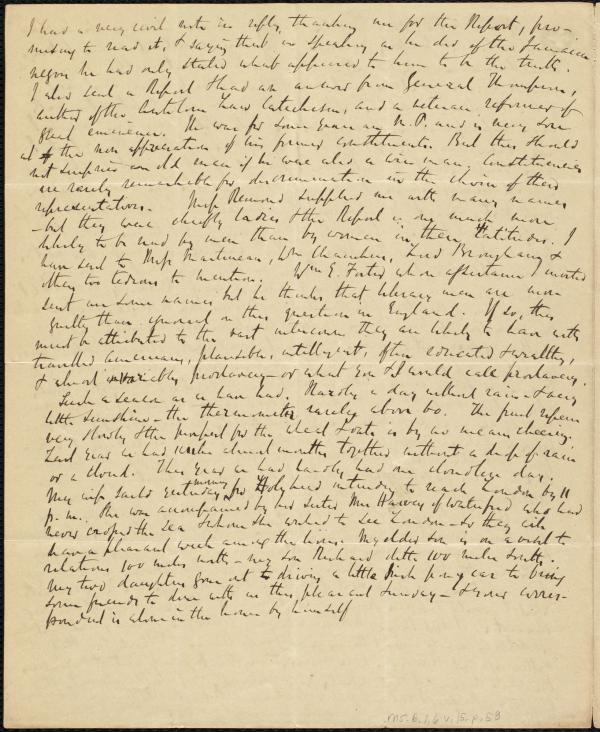 I had a very civil note in reply, thanking me for the Report, pro-
mising to read it, & saying that in speaking as he did of the Jamaica
negro he had only stated what appeared to him to be the truth.
I also sent a Report & had an answer from General Thompson,
author of the Anti Corn Law Catechism, and a veteran reformer of
great eminence. He was for some years an M.P. and is very sore
at the non appreciation of his former constituents. But this should
not surprise an old man if he were also a wise man. Constituencies
are rarely remarkable for discrimination in the choice of their
representatives. Miss Remond supplied me with many names
- but they were chiefly ladies & the Report is one much more
likely to be read by men than by women in these latitudes. I
have sent to Miss Martineau, Wm Chambers, Lord Brougham &
others too tedious to mention. Wm E. Forster whose assistance I wanted
sent me some names but he thinks that literary men are more
guilty than ignorant on this question in England. If so, this
must be attributed to the vast intercourse they are likely to have with
travelled Americans, plausible, intelligent, often educated & wealthy,
& almost invariably proslavery - or what you & I would call proslavery.
Such a season as we have had. Hardly a day without rain & very
little sunshine - the thermometer rarely above 60. The fruit ripens
very slowly & the prospect for the wheat & oats is by no means cheering.
Last year we had almost months together without a drop of rain
or a cloud. This year we have hardly had one cloudless day.
My wife sailed yesterday morning for Holyhead intending to reach London by 11
p.m. She was accompanied by her sister Mrs Harvey of Waterford who had
never crossed the sea & whom she wished to see London - so they will
have a pleasant week among the lions. My eldest son is on a visit to
relations 100 miles north - my son Richard ditto 100 miles South.
My two daughters gone out driving a little Irish pony car to bring
some friends to dine with us this pleasant Sunday - & your corres-
pondent is alone in the house by himself
Ms. B. 1. 6 v. 15. p. 59